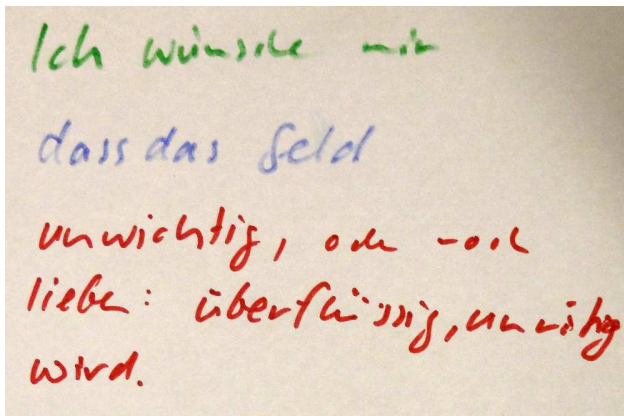 Ich wünsche mir
dass das Geld
unwichtig, oder noch
lieber: überflüssig, unnötig
wird.